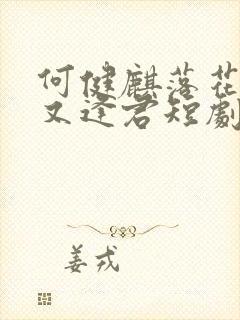 何健麒落花
又逢君短劇
姜戎